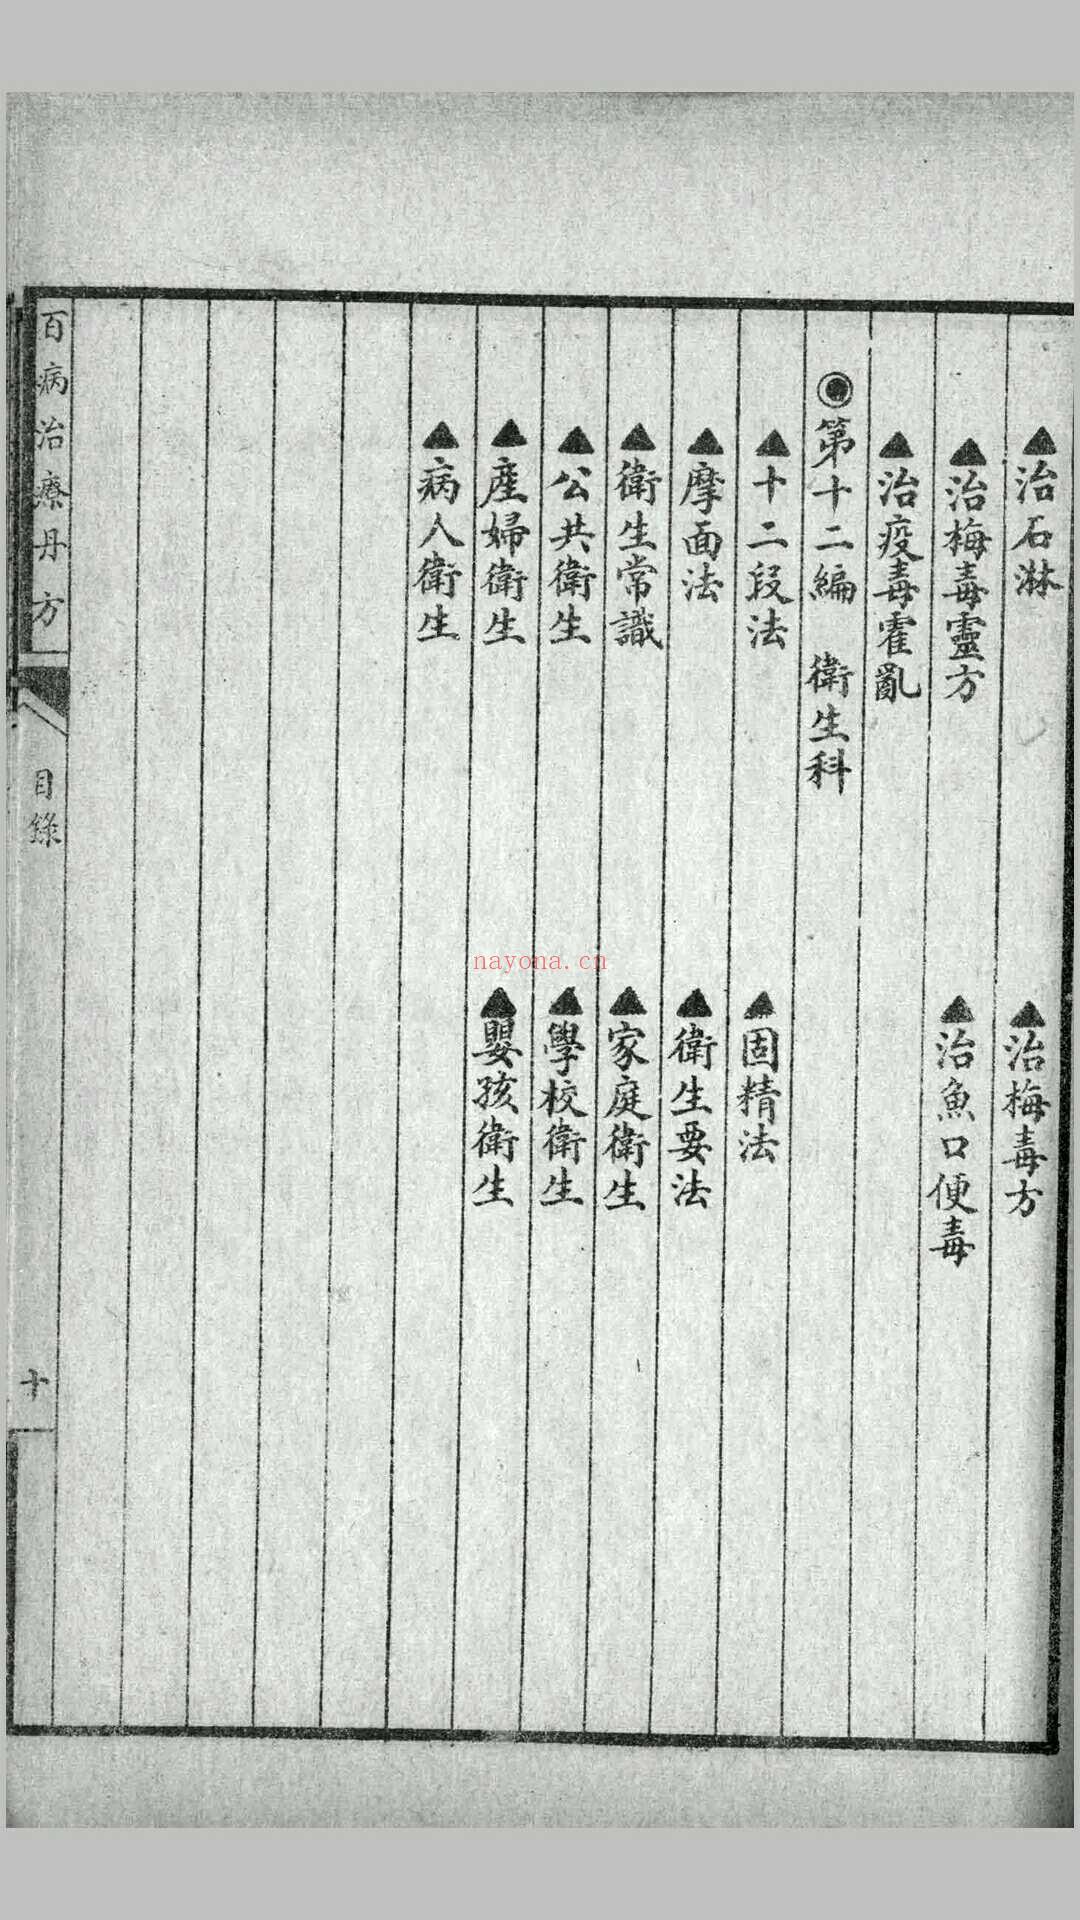 ▲治石淋
▲治梅毒方
▲治梅毒靈方
▲治魚口便毒
▲治疫毒霍亂
◉第十二編 衛生科
▲十二段法
▲固精法
▲摩面法
▲衛生要法
▲衛生常識
▲家庭衛生
▲公共衛生
▲學校衛生
▲產婦衛生
▲嬰孩衛生
▲病人衛生
百病治療丹方
目錄
十
nayona.cn